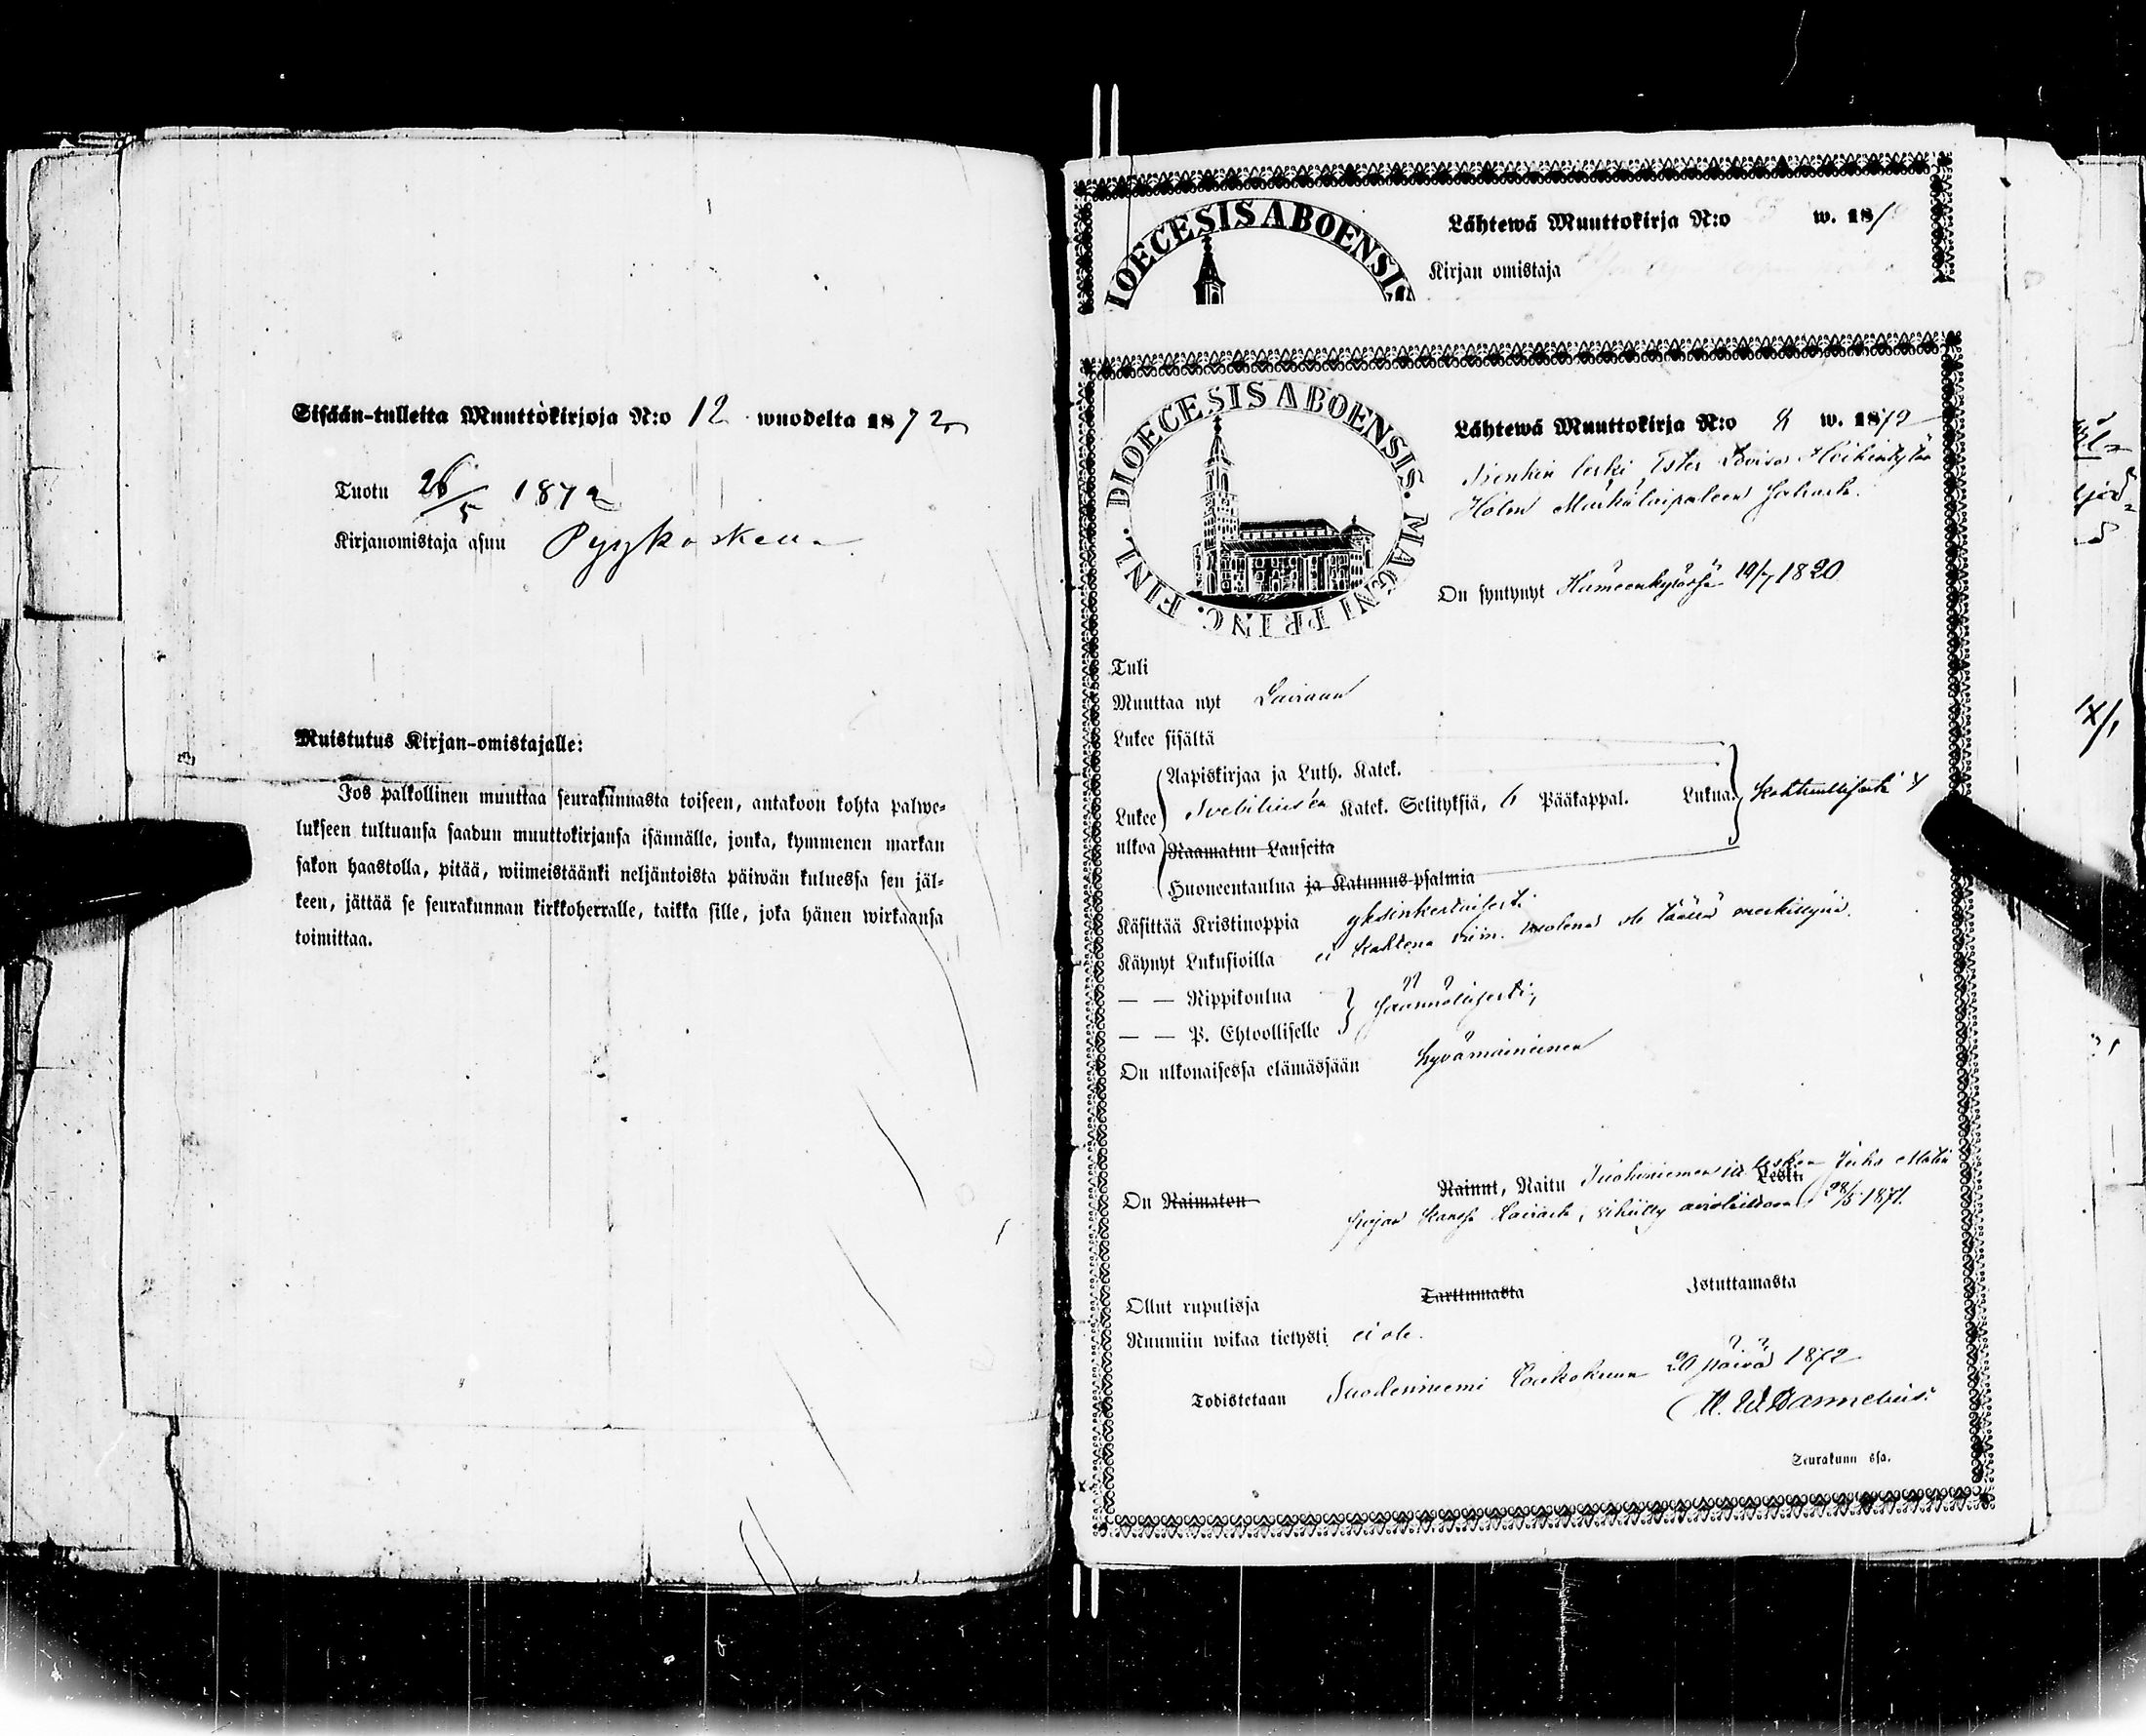 Sisään-tulleita Muuttokirjoja N:o 12 wuodelta 1872
Tuotu 26/5 1872
Kirjanomistaja asuu Pyykoskella
Muistutus Kirjan-omistajalle:
Jos palkollinen muuttaa seurakunnasta toiseen, antakoon kohta palwe-
lukseen tultuansa saadun muuttokirjansa isännälle, jonka, kymmenen markan
sakon haastolla, pitää, wiimeistäänki neljäntoista päiwän kuluessa sen jäl-
keen, jättää se seurakunnan kirkkoherralle, taikka sille, joka hänen wirkaansa
toimittaa.
IOECESIS ABOENSIS
Lähtewä Muuttokirja N:o w. 18
Kirjan omistaja
DIOECESIS ABOENSIS. MAGNI PRINC. FINL.
Lähtewä Muuttokirja N:o 8 w. 1872
leski Ester Lovisa Heikintytär
Holm
On syntynyt Hämeenkyrössä 19/7 1820
Tuli
Muuttaa nyt Laviaan
Lukee sisältä
Aapiskirjaa ja Luth. Katek.
Lukee Svebiliusen Katek. Selityksiä, 6 Pääkappal. Lukua. kohtuullisesti
ulkoa Raamatun Lauseita
Huoneentaulua ja Katumus-psalmia
Käsittää Kristinoppia yksinkertaisesti
Käynyt Lukusioilla ei kahtena viim. vuotena ole täällä merkittynä.
— — Rippikoulua
säännöllisesti,
— — P. Ehtoolliselle
On ulkonaisessa elämässään hyvämaineinen
On Naimaton Nainut, Naitu leskin Leski Juho Matin
pojan kanssa Laviasta, vihitty avioliittoon 28/5 1871.
Ollut rupulissa Tarttumasta Istuttamasta
Ruumiin wikaa tietysti ei ole.
Todistetaan Suodenniemi Toukokuun 20 päivä 1872
Seurakunn ssa.